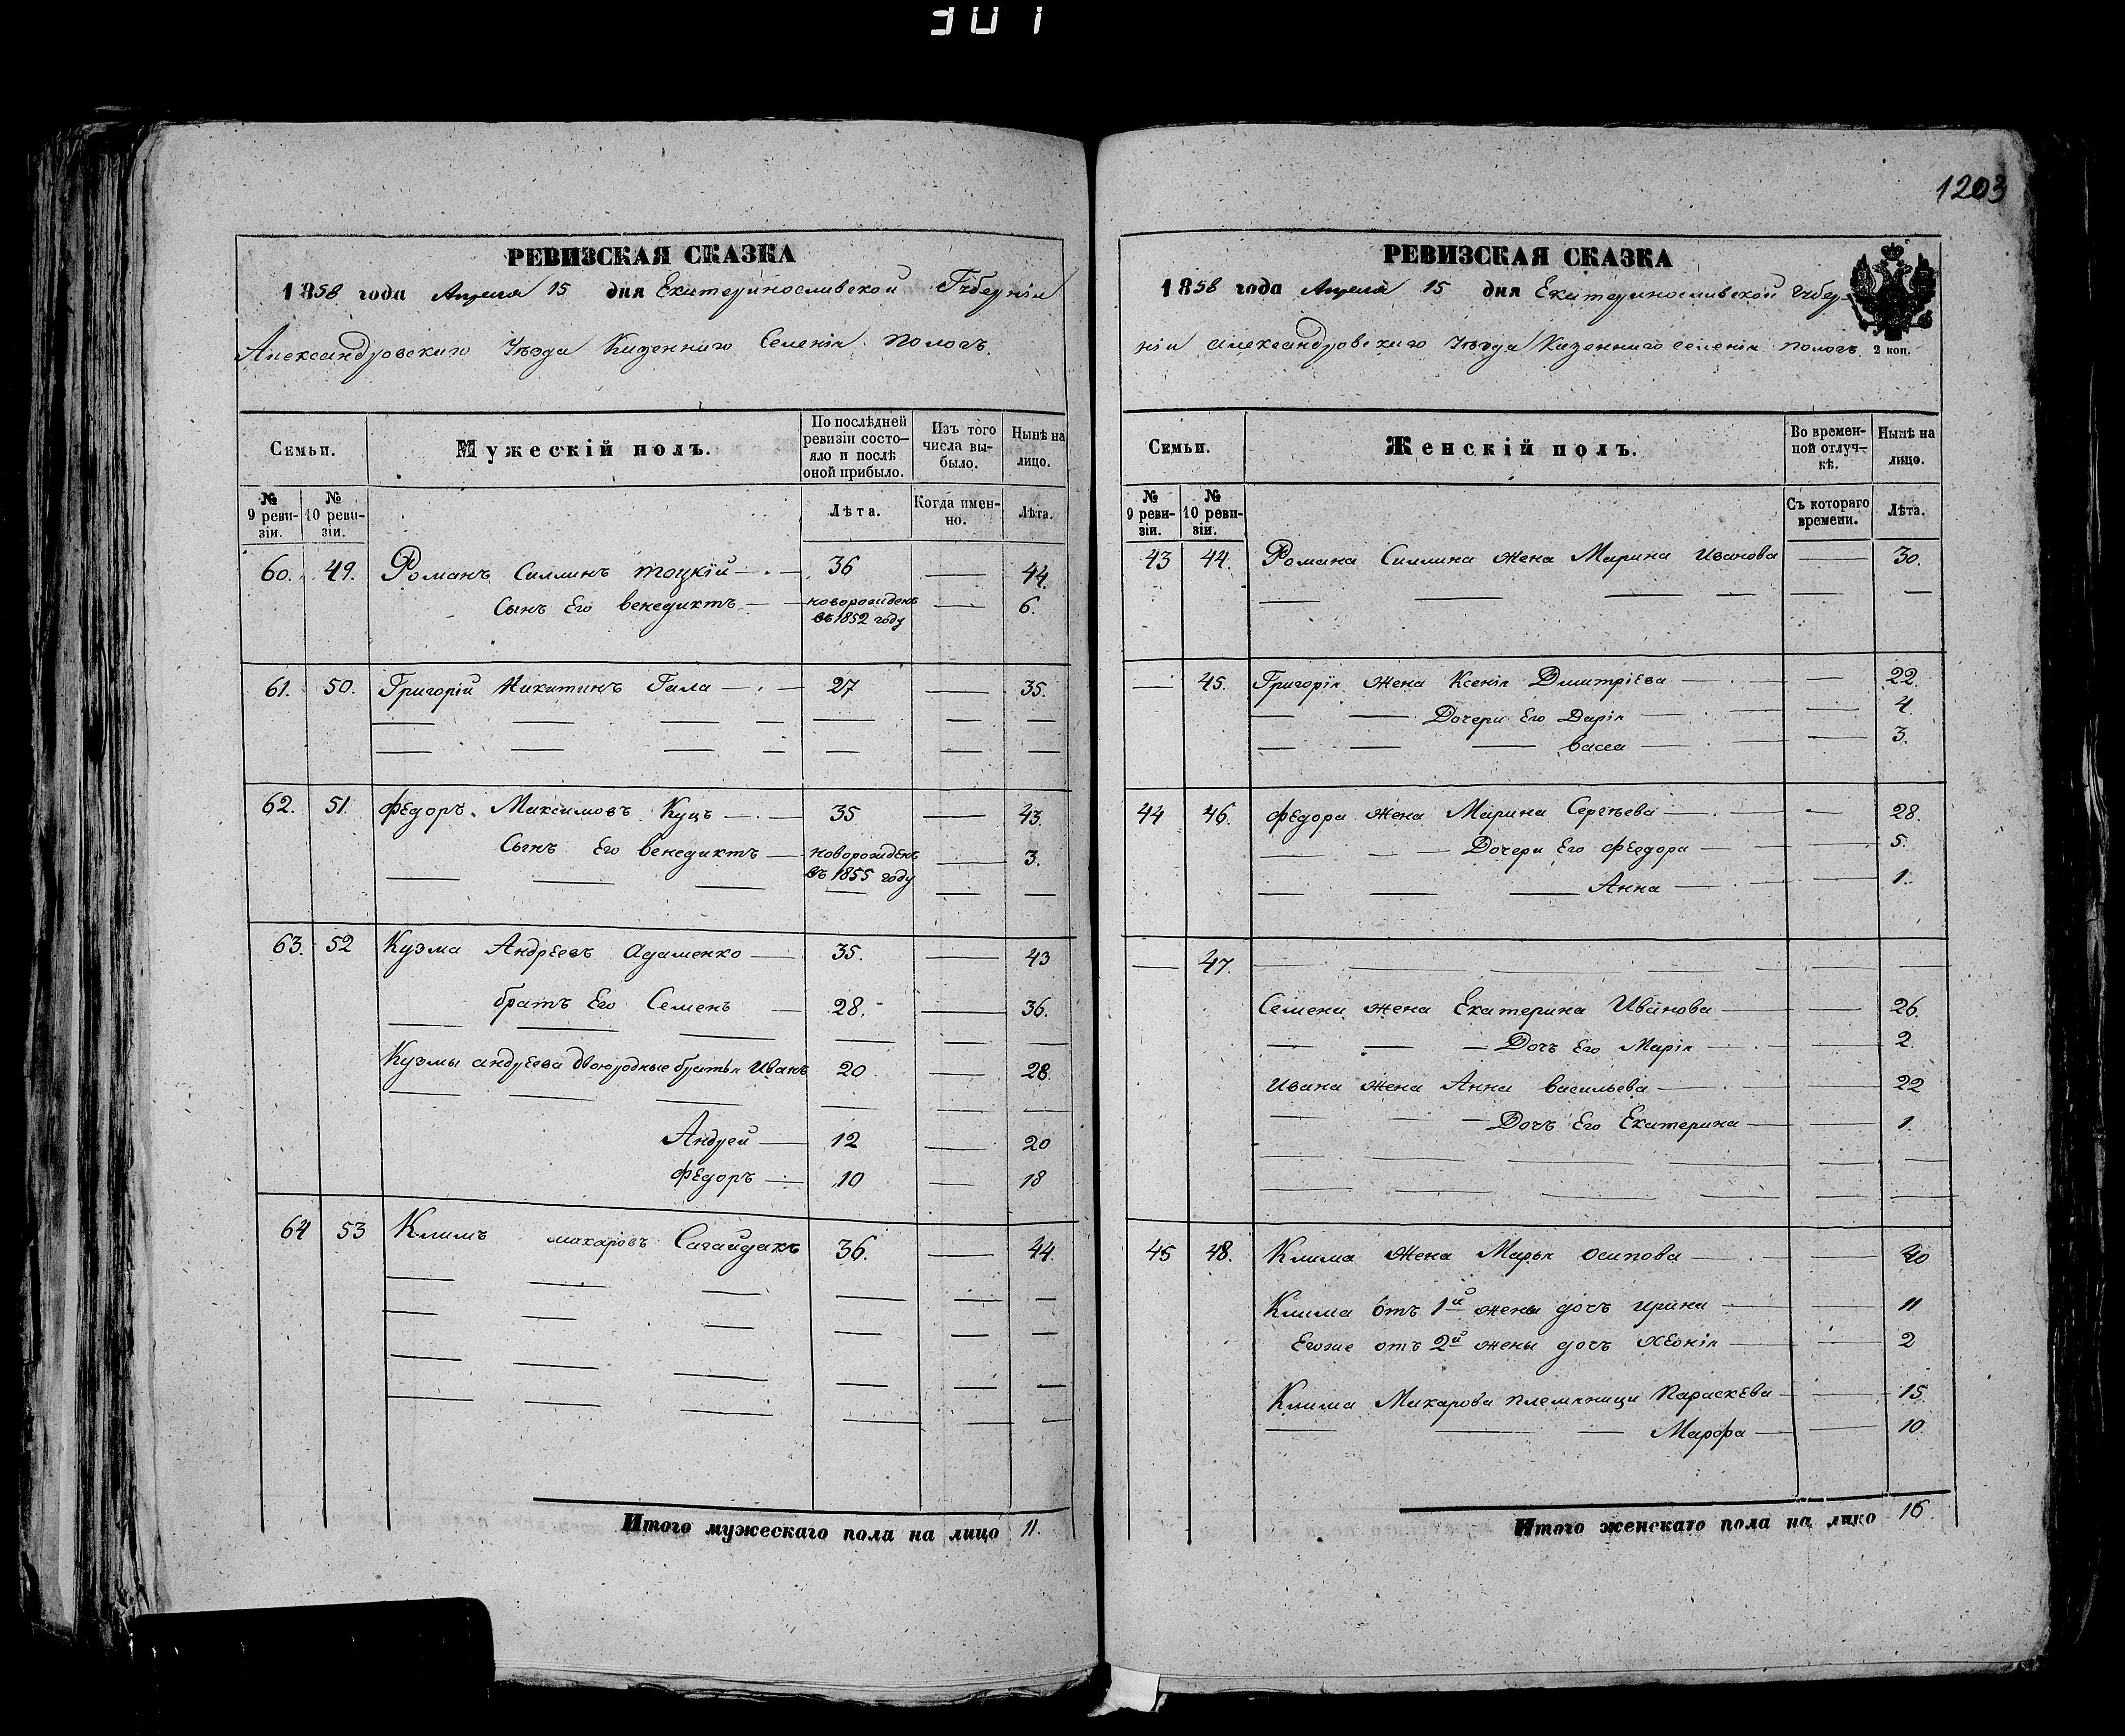 301
РЕВИЗСКАЯ СКАЗКА
1858 года Апреля 15 дня Екатеринославской Губерніи
Александровскаго Уѣзда Казеннаго Селенія Пологъ.
Семьи.
Мужескій полъ.
По послѣдней ревизіи состо-
яло и послѣ
оной прибыло.
Изъ того
числа вы-
было.
Нынѣ на
лицо.
№
9 реви-
зіи.
№
10 реви-
зіи.
Лѣта.
Когда имен-
но.
Лѣта.
60. 49. Романъ Силинъ Тоцкій — 36 — 44.
Сынъ Его Венедиктъ — новорожденъ — 6.
въ 1852 году
61. 50. Григорій Никитинъ Гала — 27 — 35.
62. 51. Федоръ Максимовъ Куцъ — 35 — 43.
Сынъ Его Венедиктъ — новорожденъ — 3.
въ 1855 году
63. 52 Кузма Андреевъ Адаменко — 35. — 43
братъ Его Семенъ — 28. — 36.
Кузмы Андреева двоюродные братья Иванъ 20 — 28
Андрей — 12 — 20
Федоръ — 10 — 18
64 53 Климъ Макаровъ Сагайдакъ 36. — 44.
Итого мужескаго пола на лицо 11.
1203
РЕВИЗСКАЯ СКАЗКА
1858 года Апреля 15 дня Екатеринославской Губер-
ніи Александровскаго Уѣзда Казеннаго селенія Пологъ
2 коп.
Семьи.
Женскій полъ.
Во времен-
ной отлуч-
кѣ.
Нынѣ на
лицо.
№
9 реви-
зіи.
№
10 реви-
зіи.
Съ котораго
времени.
Лѣта.
43 44. Романа Силина жена Марина Иванова — 30.
— 45. Григорія жена Ксенія Дмитріева — 22.
Дочери Его Дарія — 4.
Васса — 3.
44 46. Федора жена Марина Сергѣева — 28.
Дочери Его Феодора — 5.
Анна — 1.
— 47.
Семена жена Екатерина Иванова — 26.
Дочь Его Марія — 2.
Ивана жена Анна Васильева — 22
Дочь Его Екатерина — 1.
45 48. Клима жена Марья Осипова — 40
Клима отъ 1й жены дочь Ирина — 11
Егоже отъ 2й жены дочь — 2
Клима Макарова племяницы Параскева — 15.
Марфа — 10.
Итого женскаго пола на лицо 16.